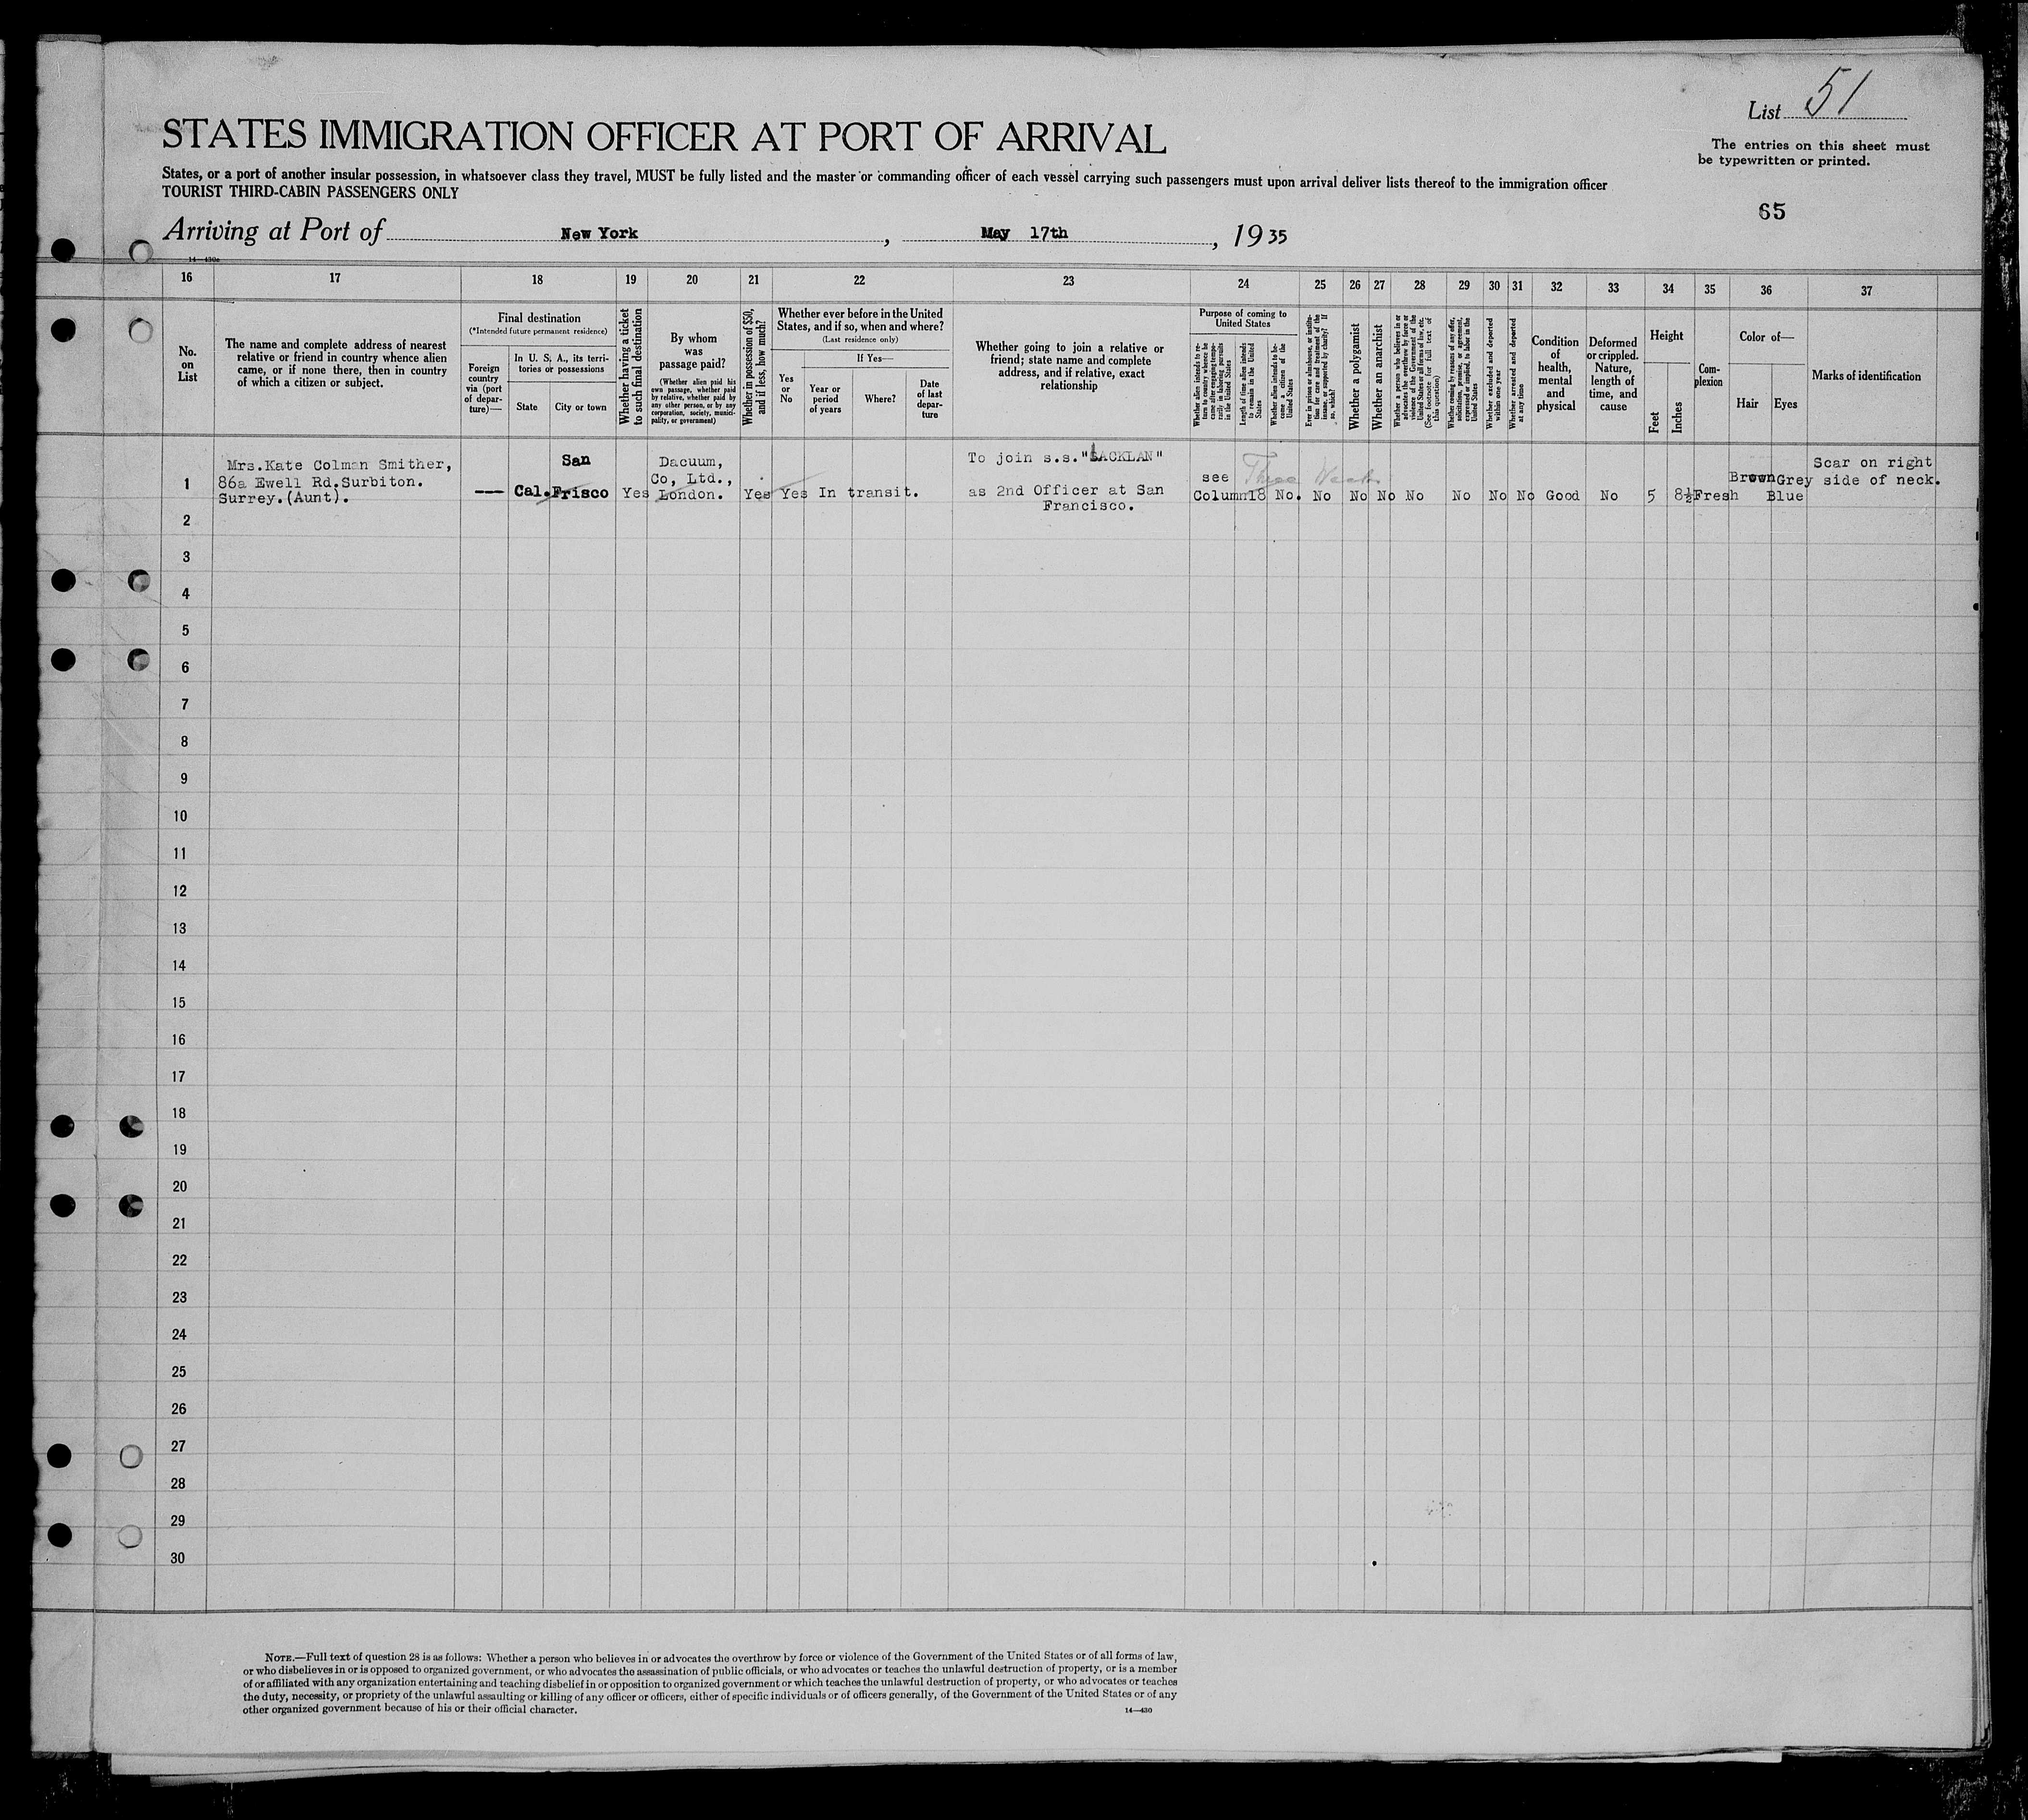 List 51
The entries on this sheet must
be typewritten or printed.
65
STATES IMMIGRATION OFFICER AT PORT OF ARRIVAL
States, or a port of another insular possession, in whatsoever class they travel, MUST be fully listed and the master or commanding officer of each vessel carrying such passengers must upon arrival deliver lists thereof to the immigration officer
TOURIST THIRD-CABIN PASSENGERS ONLY
Arriving at Port of New York, May 17th, 1935
14—430a
16 17 18 19 20 21 22 23 24 25 26 27 28 29 30 31 32 33 34 35 36 37
No.
on
List
The name and complete address of nearest
relative or friend in country whence alien
came, or if none there, then in country
of which a citizen or subject.
Final destination
(*Intended future permanent residence)
Foreign
country
via (port
of depar-
ture)—
In U. S. A., its terri-
tories or possessions
State
City or town
Whether having a ticket
to such final destination
By whom
was
passage paid?
(Whether alien paid his
own passage, whether paid
by relative, whether paid by
any other person, or by any
corporation, society, munici-
pality, or government)
Whether in possession of $50,
and if less, how much?
Whether ever before in the United
States, and if so, when and where?
(Last residence only)
Yes
or
No
If Yes—
Year or
period
of years
Where?
Date
of last
depar-
ture
Whether going to join a relative or
friend; state name and complete
address, and if relative, exact
relationship
Purpose of coming to
United States
Whether alien intends to re-
turn to country whence he
came after engaging tempo-
rarily in laboring pursuits
in the United States
Length of time alien intends
to remain in the United
States
Whether alien intends to be-
come a citizen of the
United States
Ever in prison or almshouse, or institu-
tion for care and treatment of the
insane, or supported by charity? If
so, which?
Whether a polygamist
Whether an anarchist
Whether a person who believes in or
advocates the overthrow by force or
violence of the Government of the
United States or all forms of law, etc.
(See footnote for full text of
this question)
Whether coming by reasons of any offer,
solicitation, promise, or agreement,
expressed or implied, to labor in the
United States
Whether excluded and deported
within one year
Whether arrested and deported
at any time
Condition
of
health,
mental
and
physical
Deformed
or crippled.
Nature,
length of
time, and
cause
Height
Feet
Inches
Com-
plexion
Color of—
Hair
Eyes
Marks of identification
1
Mrs.Kate Colman Smither,
86a Ewell Rd.Surbiton.
Surrey.(Aunt).
---
Cal.
San
Frisco
Yes
Dacuum,
Co, Ltd.,
London.
Yes
Yes
In transit.
To join s.s."LACKLAN"
as 2nd Officer at San
Francisco.
see
Column18
Three Weeks
No. No No No No No No No Good No 5 8½ Fresh
Brown
Grey
Blue
Scar on right
side of neck.
2
3
4
5
6
7
8
9
10
11
12
13
14
15
16
17
18
19
20
21
22
23
24
25
26
27
28
29
30
NOTE.—Full text of question 28 is as follows: Whether a person who believes in or advocates the overthrow by force or violence of the Government of the United States or of all forms of law,
or who disbelieves in or is opposed to organized government, or who advocates the assassination of public officials, or who advocates or teaches the unlawful destruction of property, or is a member
of or affiliated with any organization entertaining and teaching disbelief in or opposition to organized government or which teaches the unlawful destruction of property, or who advocates or teaches
the duty, necessity, or propriety of the unlawful assaulting or killing of any officer or officers, either of specific individuals or of officers generally, of the Government of the United States or of any
other organized government because of his or their official character.
14—430